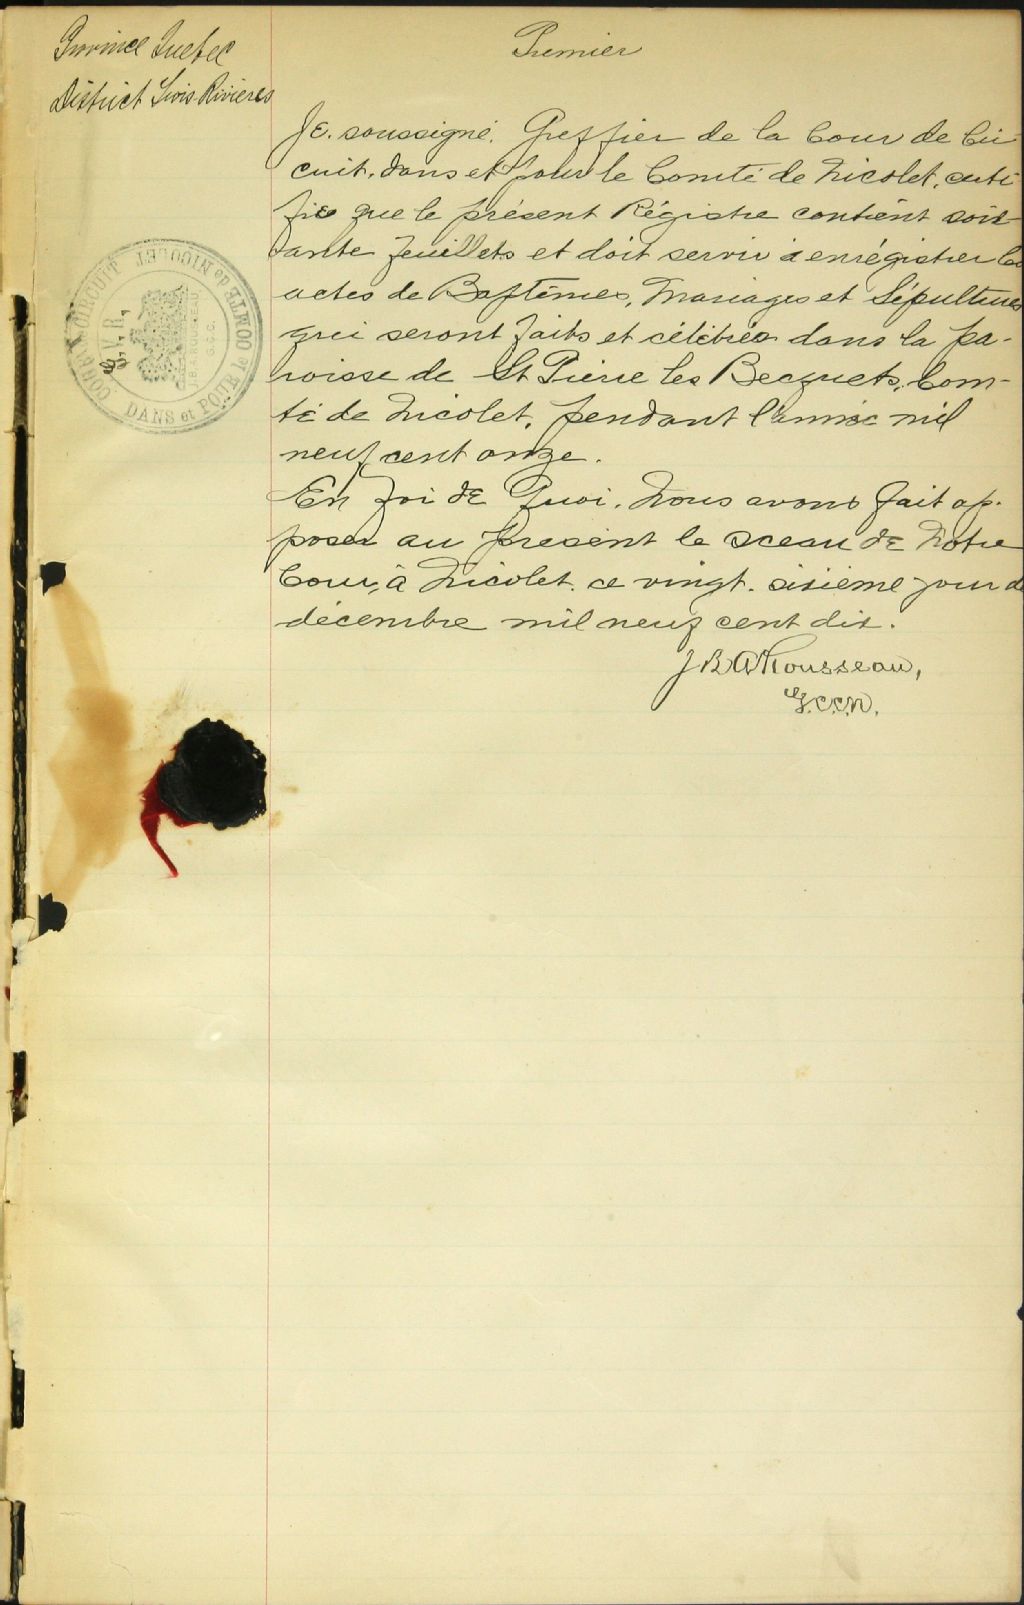 Province Quebec
District Trois-Rivières
Premier
Je. soussigné. Greffier de la Cour de Cir
cuit. dans et pour le Comté de Nicolet, certi
fie que le présent Régistre contient soix
ante feuillets et doit servir à enrégistrer les
actes de Baptêmes, Mariages et Sépultures
qui seront faits et célébrés dans la pa-
roisse de St Pierre les Becquets, Com-
té de Nicolet, pendant l'année mil
neuf cent onze.
En foi de Quoi. Nous avons fait ap-
poser au present le sceau de Notre
Cour, à Nicolet. ce vingt. sixième jour de
décembre mil neuf cent dix.
J B A Rousseau,
G.C.C.N.
COUR DE CIRCUIT
DANS et POUR le COMTÉ de NICOLET